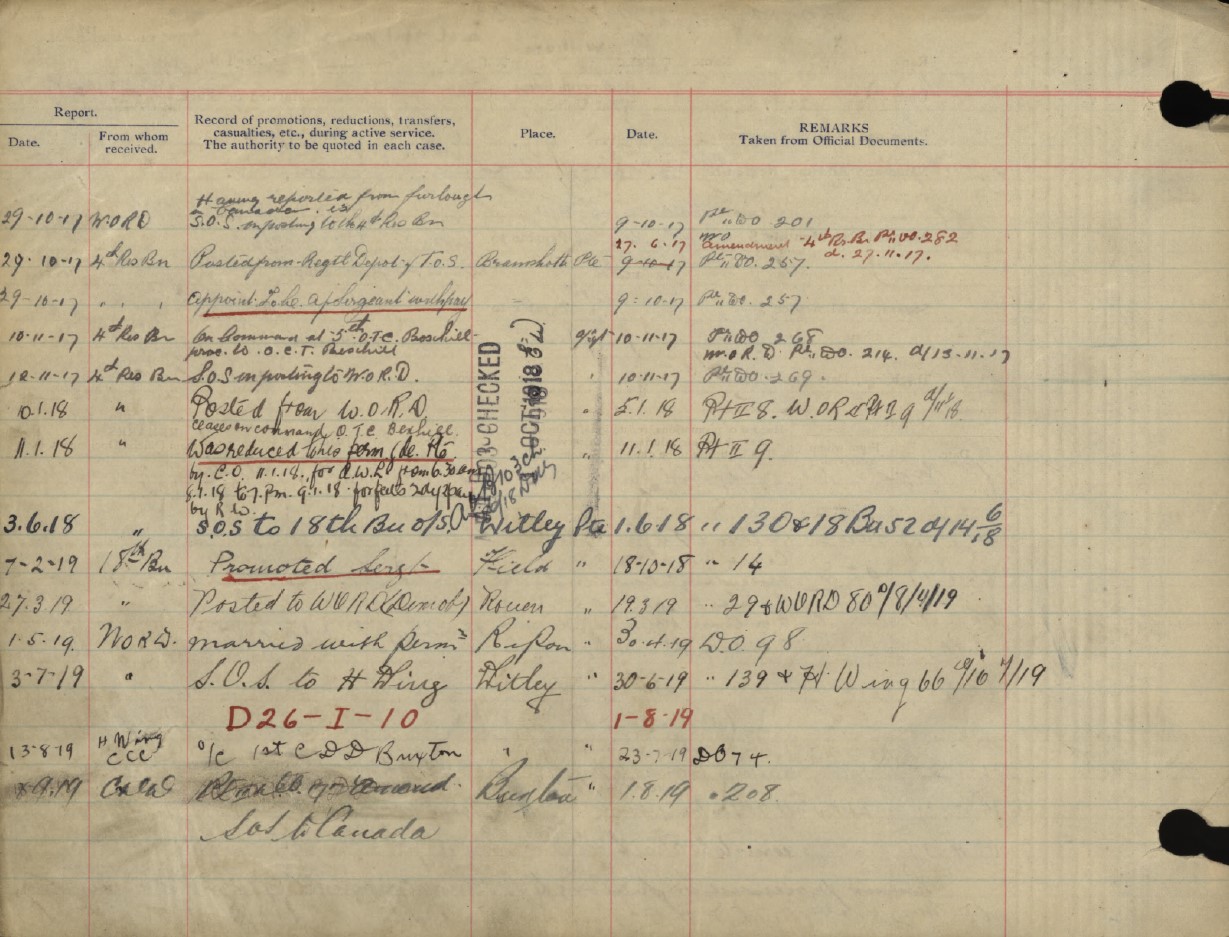 Report.
Date.
From whom received.
Record of promotions, reductions, transfers,
casualties, etc., during active service.
The authority to be quoted in each case.
Place.
Date.
REMARKS
Taken from Official Documents.
Having reported from furlough
29-10-17 W.O.R.D S.O.S. on posting to the 4th Res Bn 9-10-17 Pt II DO 201
27.6.17 amendment 4th Rs. Bn Pt II DO. 282
d. 27.11.17.
29.10-17 4th Res Bn Posted from Regtl Depot & T.O.S. Bramshott Pte Pt II DO. 257.
29-10-17 " " " appoint. To be a/Sergeant with pay 9-10-17 Pt II DO. 257
10-11-17 4th Res Bn On Command at 5th O.T.C. Bexhill a/sgt 10-11-17 Pt II DO 268
proc. to O.C.T. Bexhill W.O.R.D. Pt II DO. 214. d/13-11-17
12-11-17 4th Res Bn S.O.S on posting to W.O.R.D. " 10-11-17 Pt II DO. 269.
10.1.18 " Posted from W.O.R.D. " 5.1.18 Pt II 8. W.O.R.D Pt II 9
ceases on command O.T.C. Bexhill.
11.1.18 " Was reduced to perm gde. Pte " 11.1.18 Pt II 9.
by C.O. 11.1.18, for A.W.L. from 6.30 am
8.1.18 to 7. pm. 9.1.18. forfeits 2 dys pay
by R.W.
CHECKED
OCT 1918
3.6.18 " S.O.S to 18th Bn o/s. Witley Pte 1.6.18 " 130 & 18 Bn 52 d/14/6/18
7-2-19 18th Bn Promoted Sergt Field " 18-10-18 " 14
27.3.19 " Posted to WORD (Demob) Rouen " 19.3.19 " 29 & WORD 80 d/8/4/19
1-5-19. WORD. married with permn Ripon " 30.4.19 D.O. 98
3-7-19 " S.O.S. to H Wing Witley " 30-6-19 " 139 & H Wing 66
D26-I-10 1-8-19
13-8-19 H Wing CCC o/c 1st C D D Buxton " " 23-7-19 DO 74.
Buxton " 1.8.19 " 208.
SOS to Canada